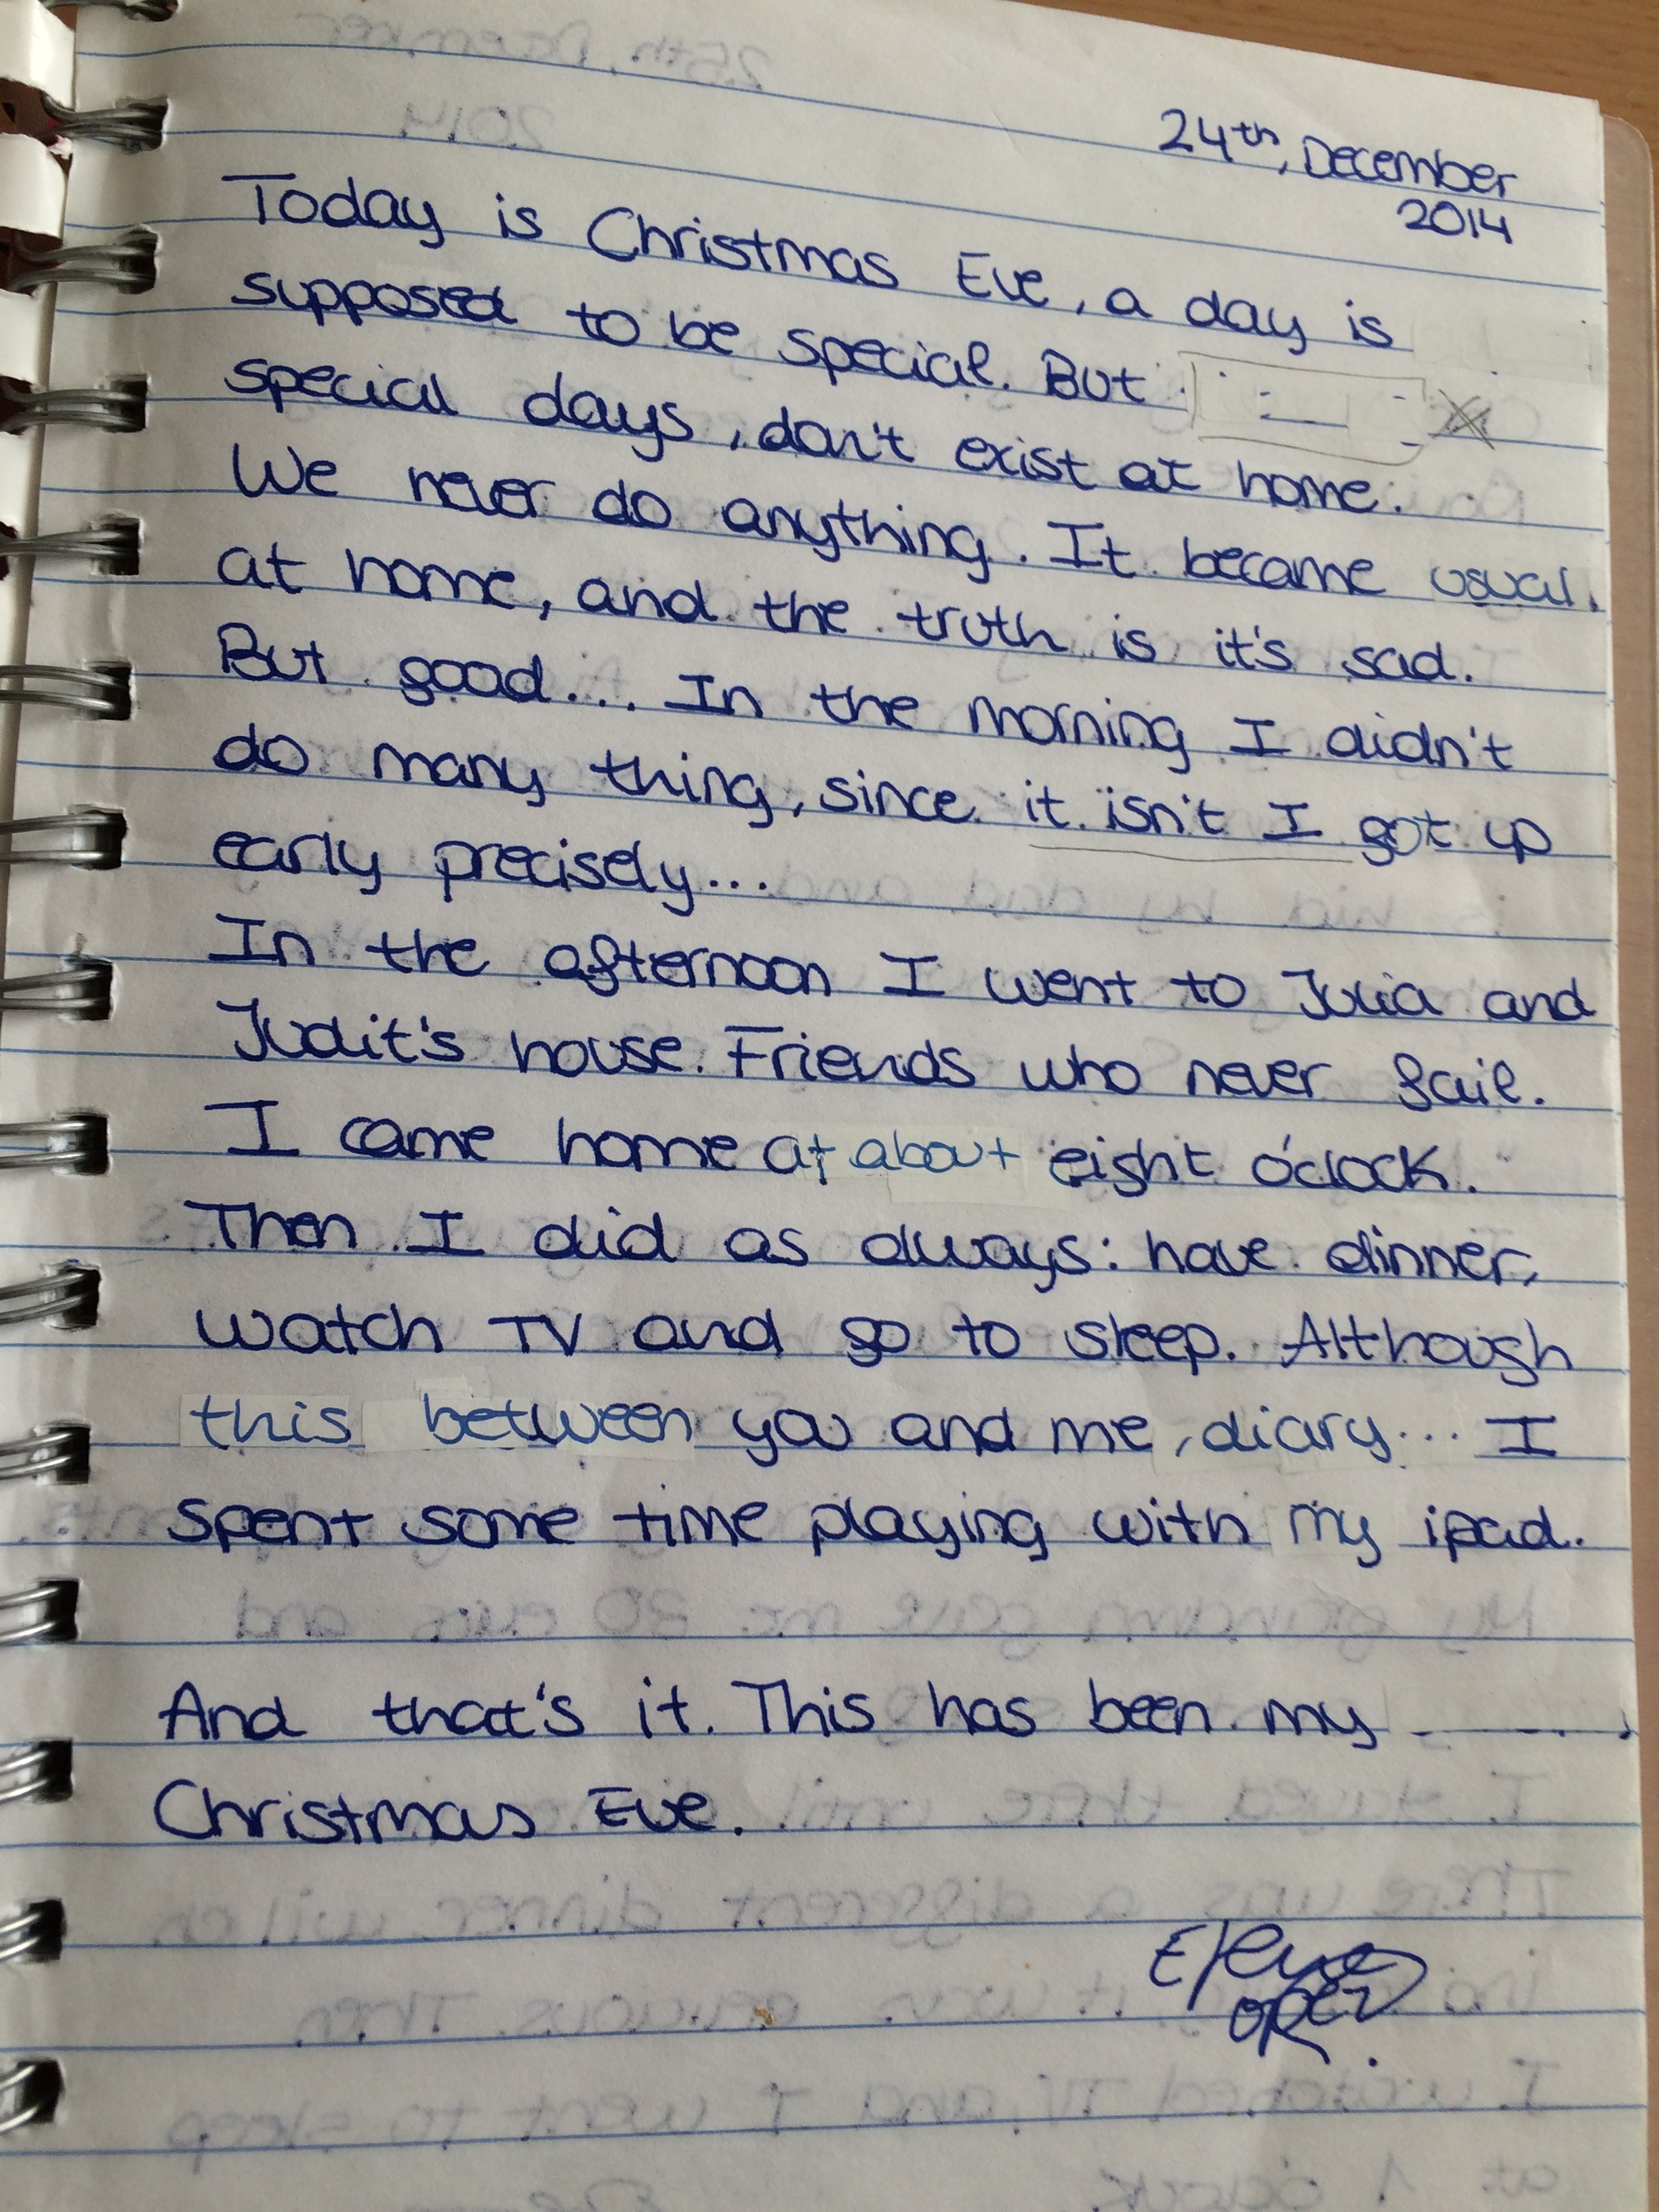 24th, December
2014
Today is Christmas Eve, a day is
supposed to be special. But
special days, don't exist at home.
We never do anything. It became usual.
at home, and the truth is it's sad.
But good... In the morning I didn't
do many thing, since it isn't I got up
early precisely...
In the afternoon I went to Julia and
Judit's house. Friends who never fail.
I came home at about eight o'clock.
Then I did as always: have dinner,
watch TV and go to sleep. Although
this between you and me, diary... I
spent some time playing with my ipad.
And that's it. This has been my
Christmas Eve.